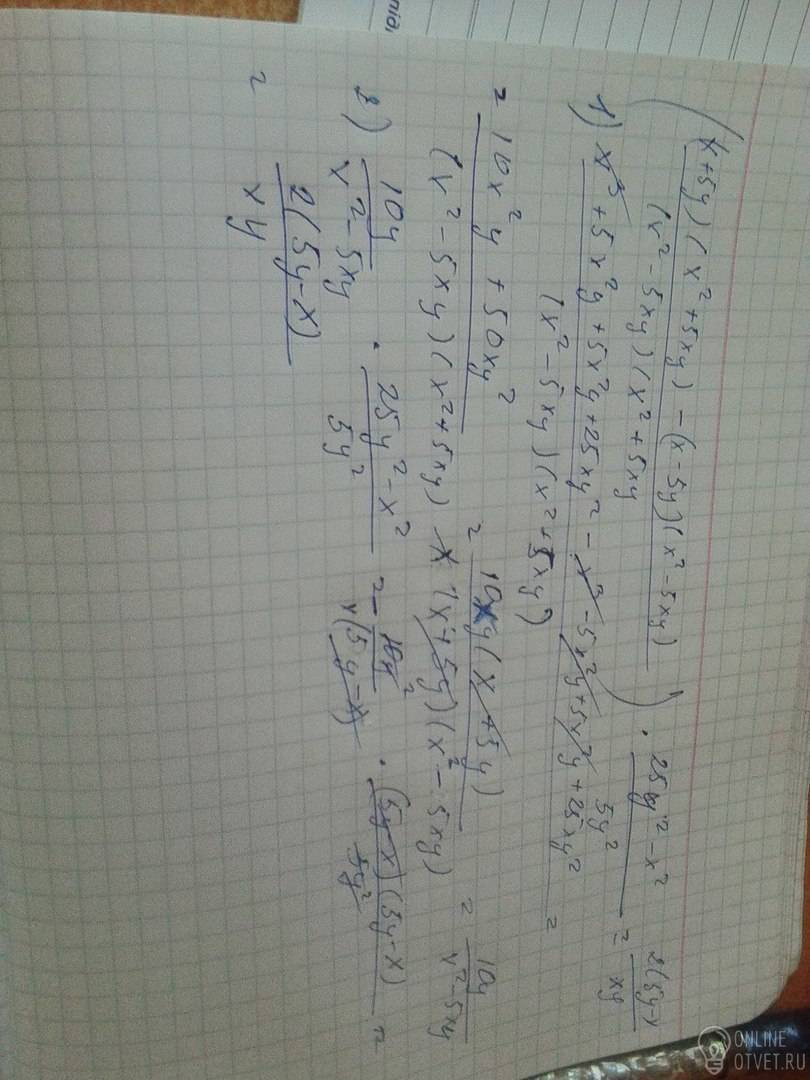 ( (x+5y)(x²+5xy) - (x-5y)(x²-5xy) / (x²-5xy)(x²+5xy ) · 25y²-x² / 5y² = 2(5y-x / xy
1) x³+5x²y+5x²y+25xy² - x³-5x²y+5x²y+25xy² / (x²-5xy)(x²+5xy) =
= 10x²y+50xy² / (x²-5xy)(x²+5xy) = 10xy(x+5y) / x(x+5y)(x²-5xy) = 10y / x²-5xy
2) 10y / x²-5xy · 25y²-x² / 5y² = - / x(5y-x) · (5y-x)(5y-x) / 5y² =
= 2(5y-x) / xy
ONLINE
OTVET.RU